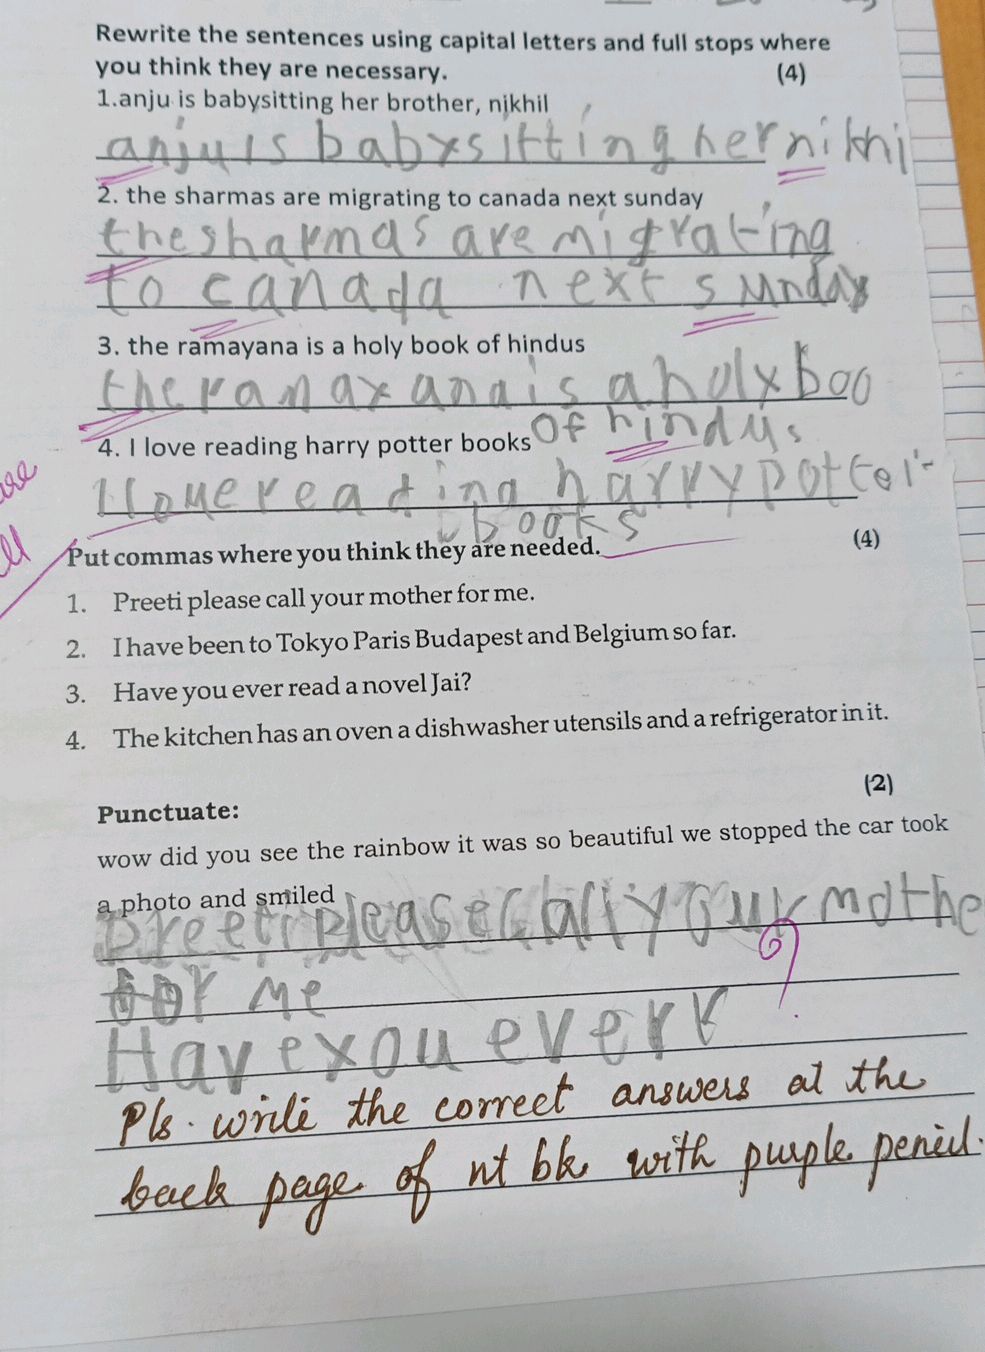 Rewrite the sentences using capital letters and full stops where
you think they are necessary. (4)
1.anju is babysitting her brother, nikhil
anju is babysitting her nikhi
2. the sharmas are migrating to canada next sunday
the sharmas are migrating
to canada next sunday
3. the ramayana is a holy book of hindus
the ramayana is a holy boo
of hindus
4. I love reading harry potter books
I love reading harry potter
books
Put commas where you think they are needed. (4)
1. Preeti please call your mother for me.
2. I have been to Tokyo Paris Budapest and Belgium so far.
3. Have you ever read a novel Jai?
4. The kitchen has an oven a dishwasher utensils and a refrigerator in it.
(2)
Punctuate:
wow did you see the rainbow it was so beautiful we stopped the car took
a photo and smiled
Preeti please Call your mothe
for me
?
Have you ever r
Pls. write the correct answers at the
back page of nt bk with purple pencil.